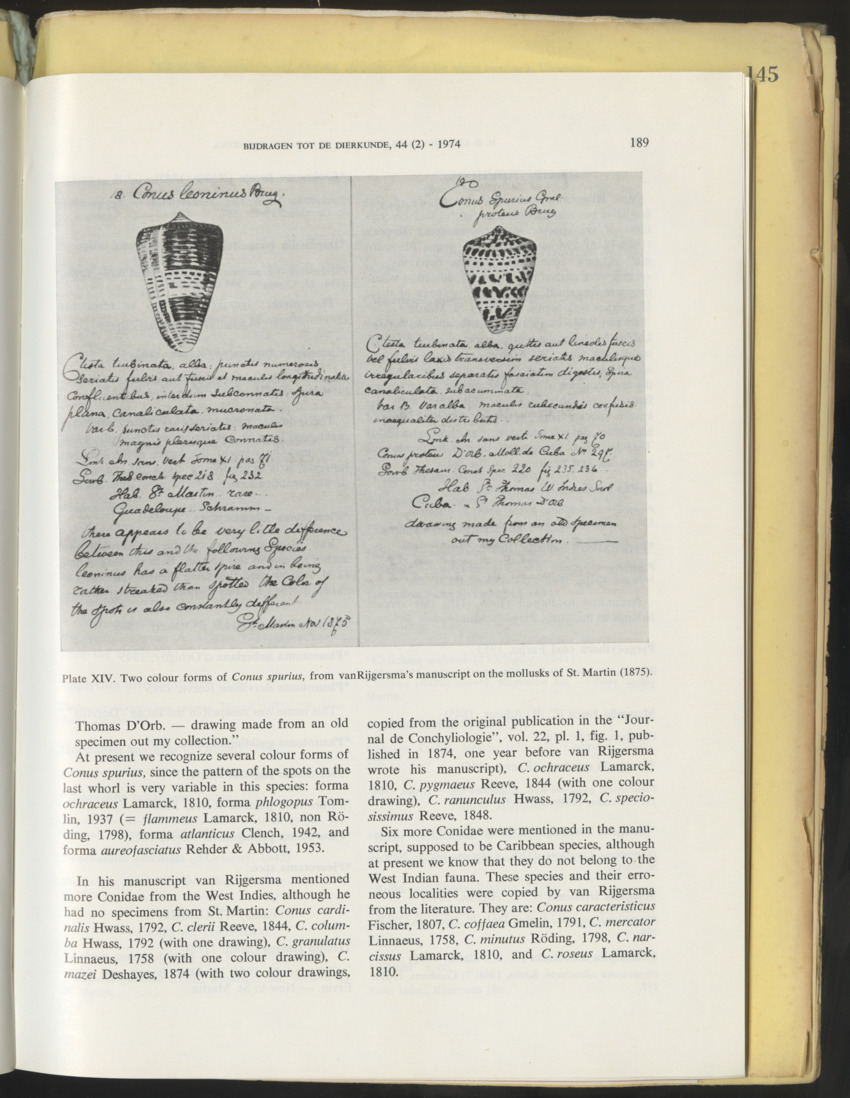 145
BIJDRAGEN TOT DE DIERKUNDE, 44 (2) - 1974
189
8. Conus leoninus Brug.
Testa turbinata, alba, punctis numerosis
seriatis fulvis aut fuscis et maculis longitudinalis
Confluentibus, interdum subconnatis. Spira
plana, canaliculata, mucronata.
Var b. punctis raris seriatis: maculis
magnis plerisque Connatis.
Lmk An sans. vert Tome XI. pag 71
Sowb. Thes Conch spec 218 fig 232
Hab. St Martin. rare.
Guadeloupe. Schramm —
there appears to be very little difference
between this and the following Species
leoninus has a flatter spire and in being
rather streaked than spotted the Color of
the spots is also constantly different
St Martin Nov 1875
Conus Spurius Gmel
proteus Brug
Testa turbinata, alba, guttis aut lineolis fuscis
vel fulvis laxis transversim seriatis maculisque
irregularibus separatis fasciatim digestis, Spira
canaliculata, subacuminata.
Var B. Var alba, maculis
inaequaliter distributis.
Lmk An sans vert Tome XI pag 70
Conus proteus D'Orb. Moll de Cuba No
Sowb Thesaur. Conch Spec 220 fig 235. 236
Hab St Thomas W Indies Sow
Cuba. St Thomas D'Orb
drawing made from an old specimen
out my Collection. —
Plate XIV. Two colour forms of Conus spurius, from van Rijgersma's manuscript on the mollusks of St. Martin (1875).
Thomas D'Orb. — drawing made from an old
specimen out my collection."
At present we recognize several colour forms of
Conus spurius, since the pattern of the spots on the
last whorl is very variable in this species: forma
ochraceus Lamarck, 1810, forma phlogopus Tom-
lin, 1937 (= flammeus Lamarck, 1810, non Rö-
ding, 1798), forma atlanticus Clench, 1942, and
forma aureofasciatus Rehder & Abbott, 1953.
In his manuscript van Rijgersma mentioned
more Conidae from the West Indies, although he
had no specimens from St. Martin: Conus cardi-
nalis Hwass, 1792, C. clerii Reeve, 1844, C. colum-
ba Hwass, 1792 (with one drawing), C. granulatus
Linnaeus, 1758 (with one colour drawing), C.
mazei Deshayes, 1874 (with two colour drawings,
copied from the original publication in the "Jour-
nal de Conchyliologie", vol. 22, pl. 1, fig. 1, pub-
lished in 1874, one year before van Rijgersma
wrote his manuscript), C. ochraceus Lamarck,
1810, C. pygmaeus Reeve, 1844 (with one colour
drawing), C. ranunculus Hwass, 1792, C. specio-
sissimus Reeve, 1848.
Six more Conidae were mentioned in the manu-
script, supposed to be Caribbean species, although
at present we know that they do not belong to the
West Indian fauna. These species and their erro-
neous localities were copied by van Rijgersma
from the literature. They are: Conus caracteristicus
Fischer, 1807, C. coffaea Gmelin, 1791, C. mercator
Linnaeus, 1758, C. minutus Röding, 1798, C. nar-
cissus Lamarck, 1810, and C. roseus Lamarck,
1810.